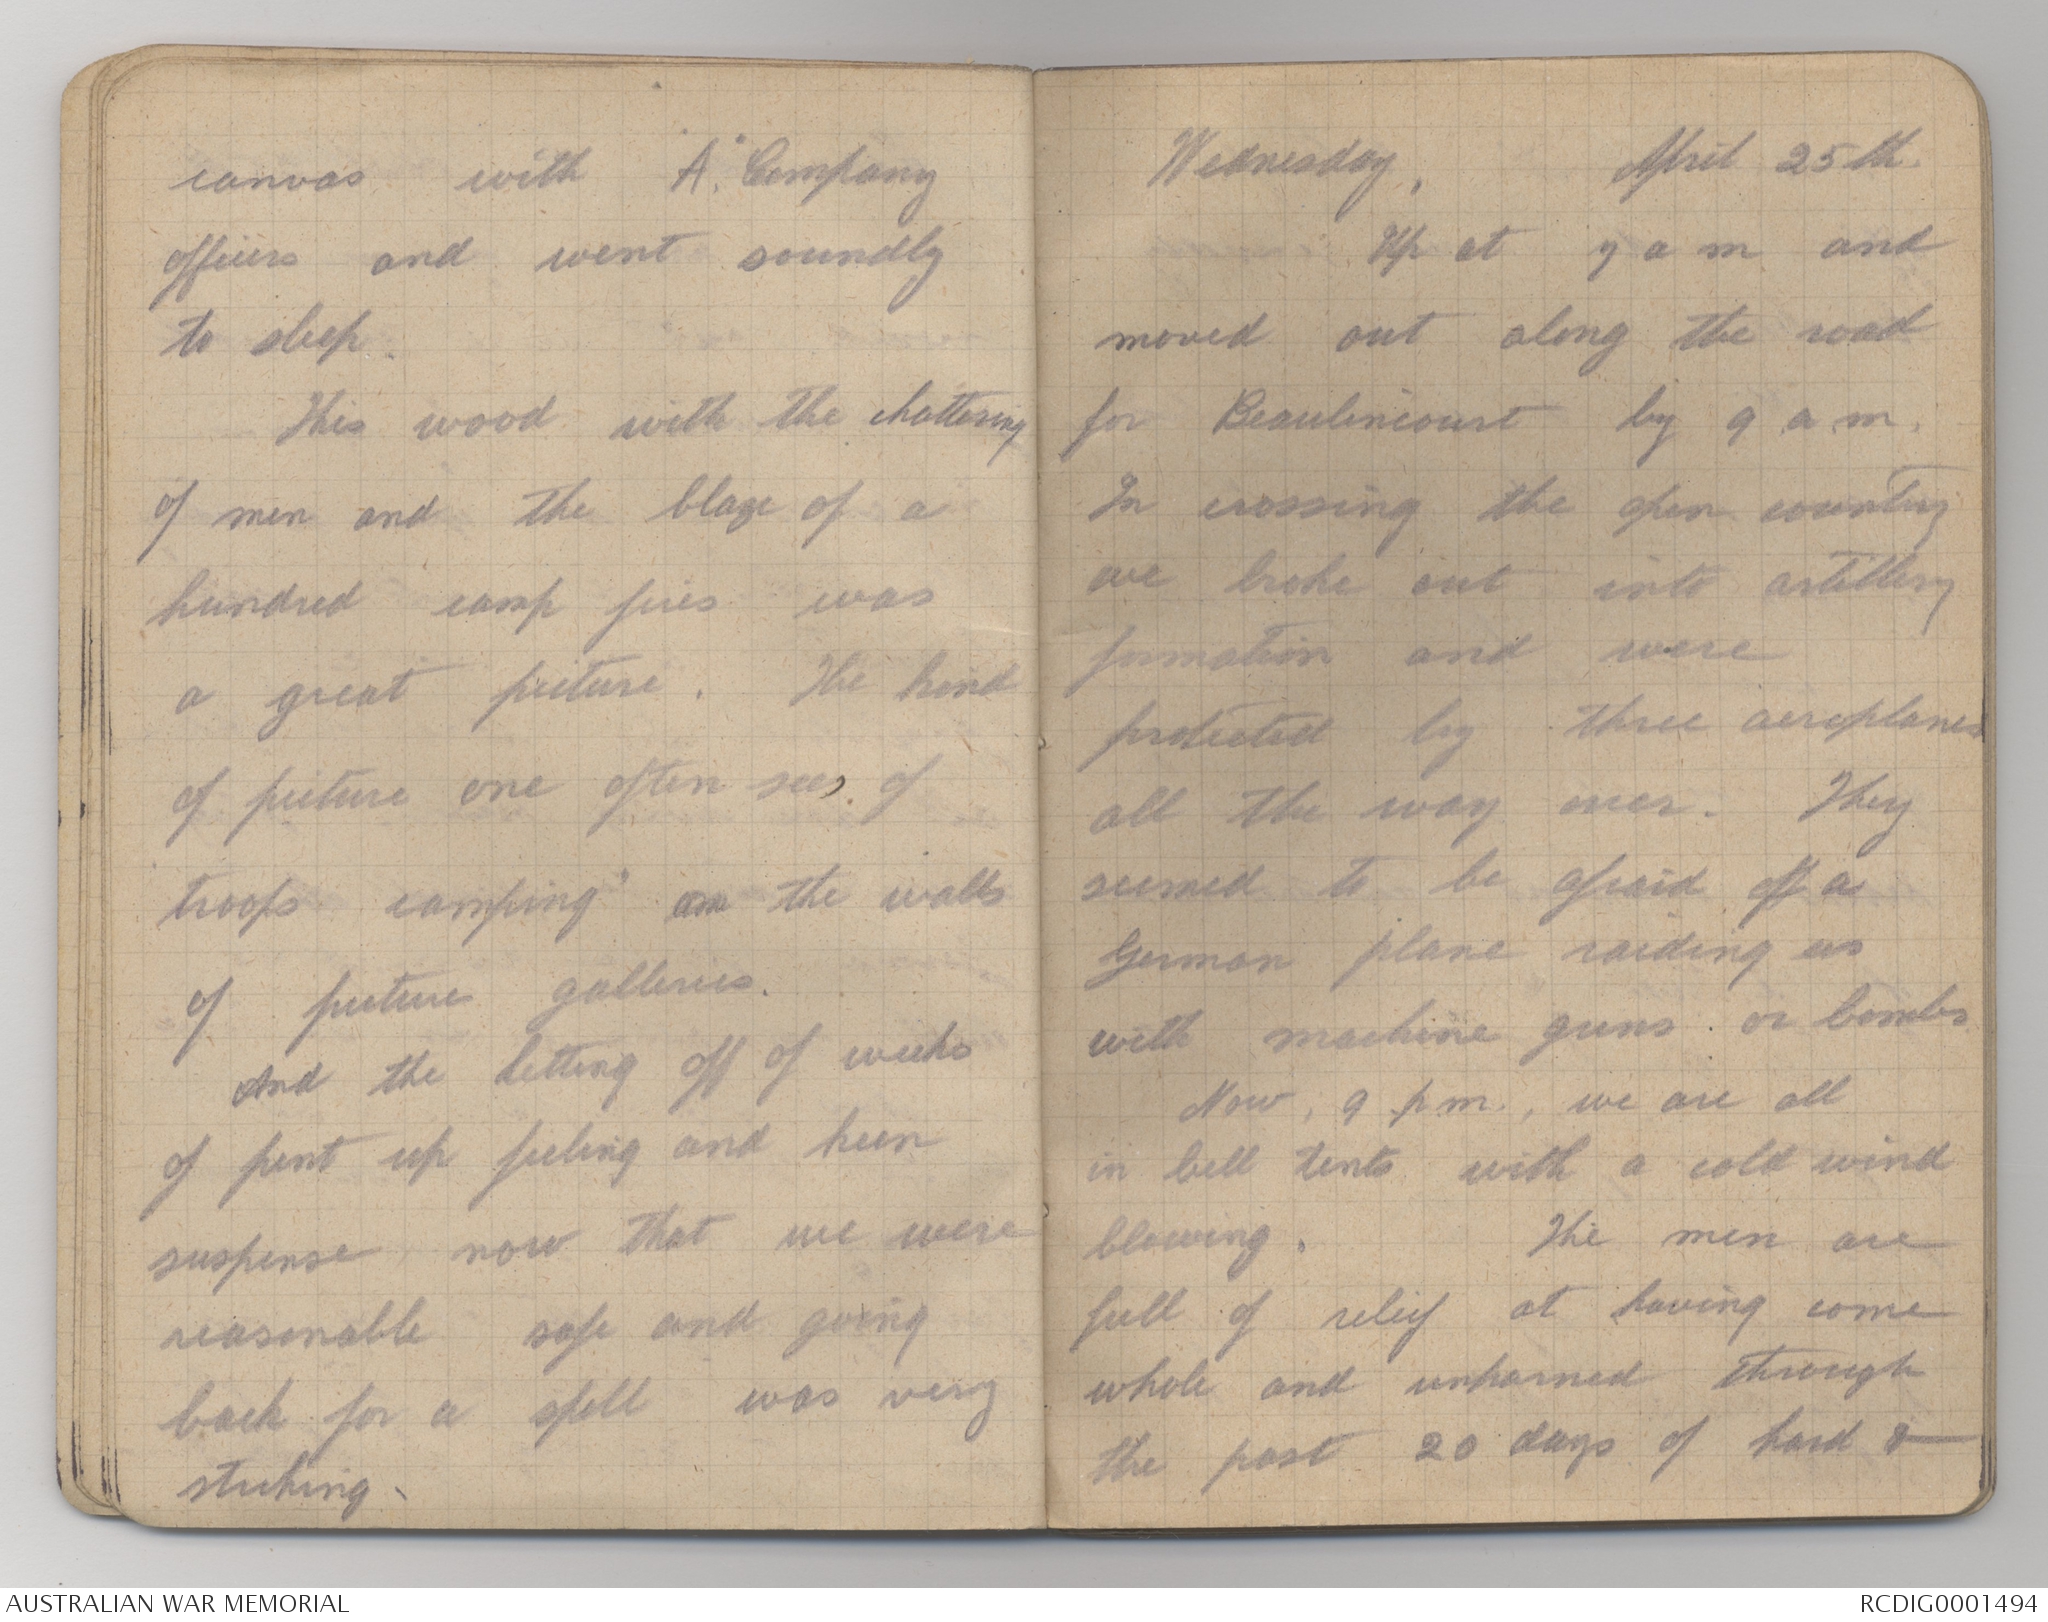 canvas with "A" Company
officers and went soundly
to sleep.
This wood with the chattering
of men and the blaze of a
hundred camp fires was
a great picture. The kind
of picture one often sees of
'troops camping' on the walls
of picture galleries.
And the letting off of weeks
of pent up feeling and keen
suspense now that we were
reasonable safe and going
back for a spell was very
striking.
Wednesday, April 25th.
Up at 7 a m and
moved out along the road
for Beaulencourt by 9 a.m.
In crossing the open country
we broke out into artillery
formation and were
protected by three aeroplanes
all the way over. They
seemed to be afraid off a
German plane raiding us
with machine guns or bombs
Now, 9 p.m., we are all
in bell tents with a cold wind
blowing. The men are
full of relief at having come
whole and unharmed through
the past 20 days of hard &
AUSTRALIAN WAR MEMORIAL
RCDIG0001494